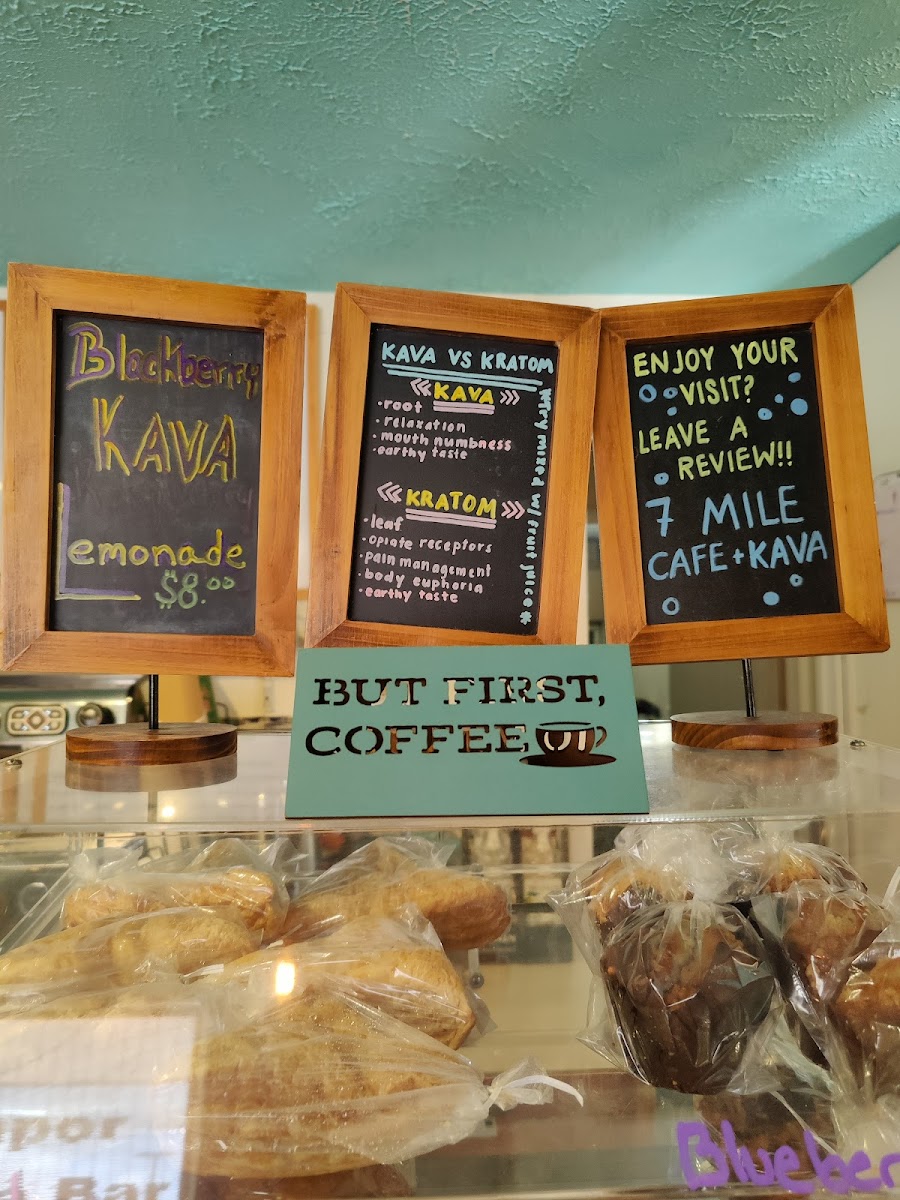 Blackberry
KAVA
Lemonade
$8.00
KAVA VS KRATOM
<<< KAVA >>>
·root
·relaxation
·mouth numbness
·earthy taste
<<< KRATOM >>>
·leaf
·opiate receptors
·pain management
·body euphoria
·earthy taste
mixed w/ fruit juice*
ENJOY YOUR
VISIT?
LEAVE A
REVIEW!!
7 MILE
CAFE + KAVA
BUT FIRST,
COFFEE
por
Bar
Blueber